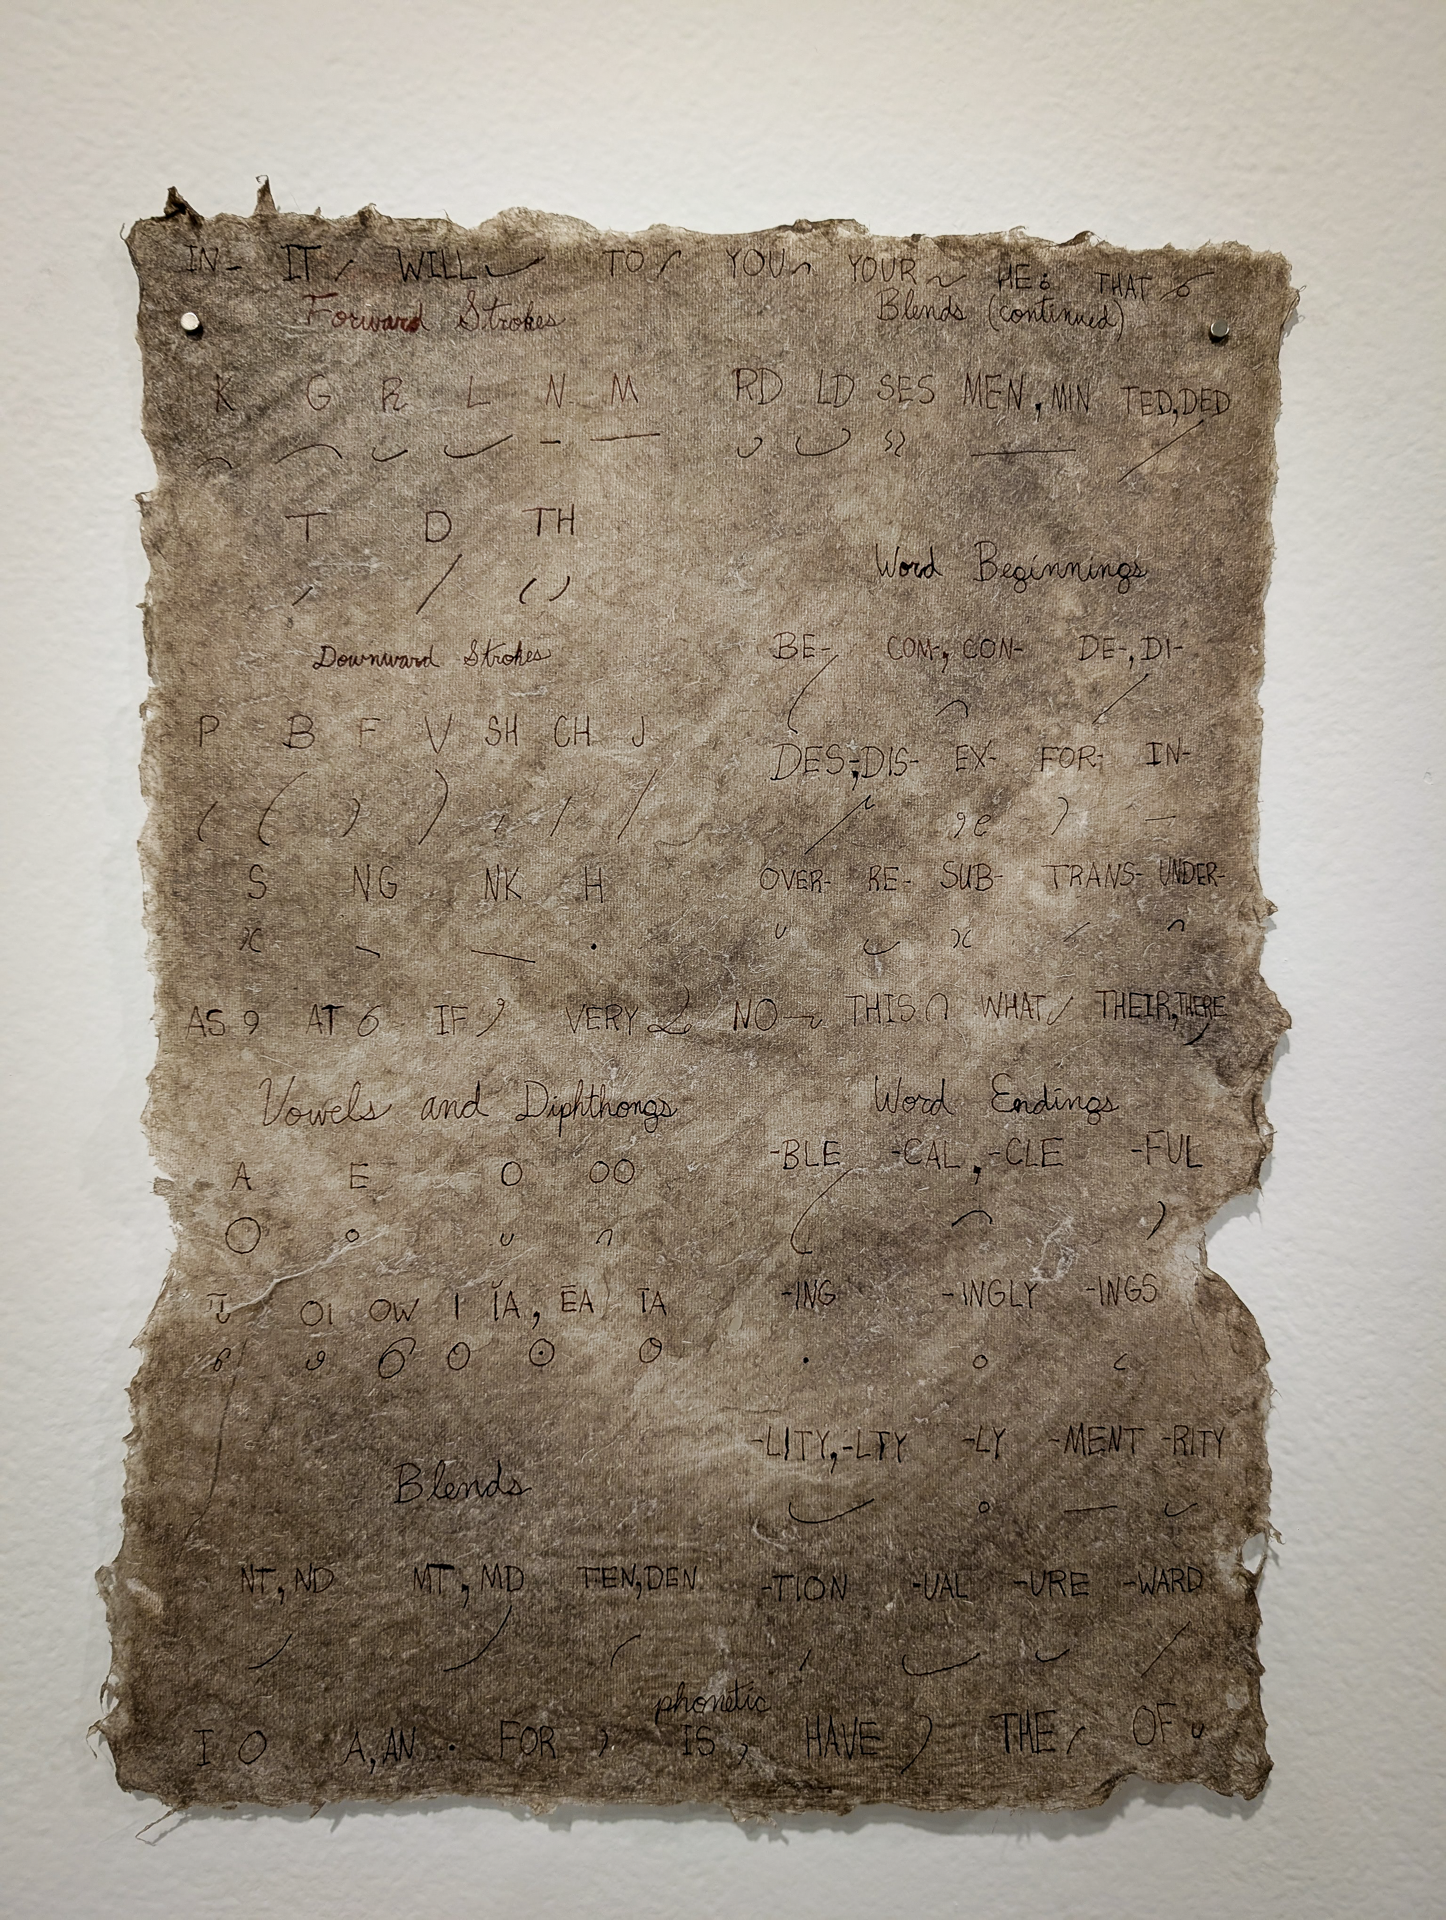 IN- IT WILL TO YOU YOUR HE THAT
Forward Strokes
K G R L N M
T D TH
Downward Strokes
P B F V SH CH J
S NG NK H
AS AT IF VERY
Vowels and Diphthongs
A E O OO
OI OW I ĬA, ĒA ĪA
Blends
NT, ND MT, MD TEN, DEN
Blends (continued)
RD LD SES MEN, MIN TED, DED
Word Beginnings
BE- COM-, CON- DE-, DI-
DES-, DIS- EX- FOR- IN-
OVER- RE- SUB- TRANS- UNDER-
NO THIS WHAT THEIR, THERE
Word Endings
-BLE -CAL, -CLE -FUL
-ING -INGLY -INGS
-LITY, -LTY -LY -MENT -RITY
-TION -UAL -URE -WARD
phonetic
I A, AN FOR IS HAVE THE OF